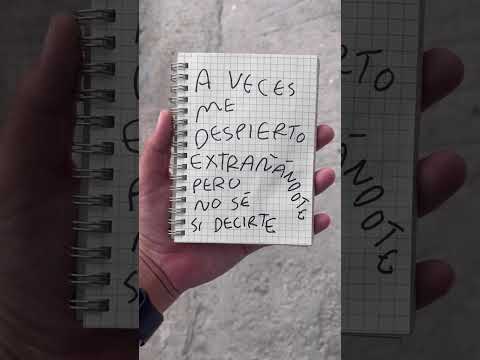 A VECES
ME
DESPIERTO
EXTRAÑÁNDOTE
PERO
NO SÉ
SI DECIRTE